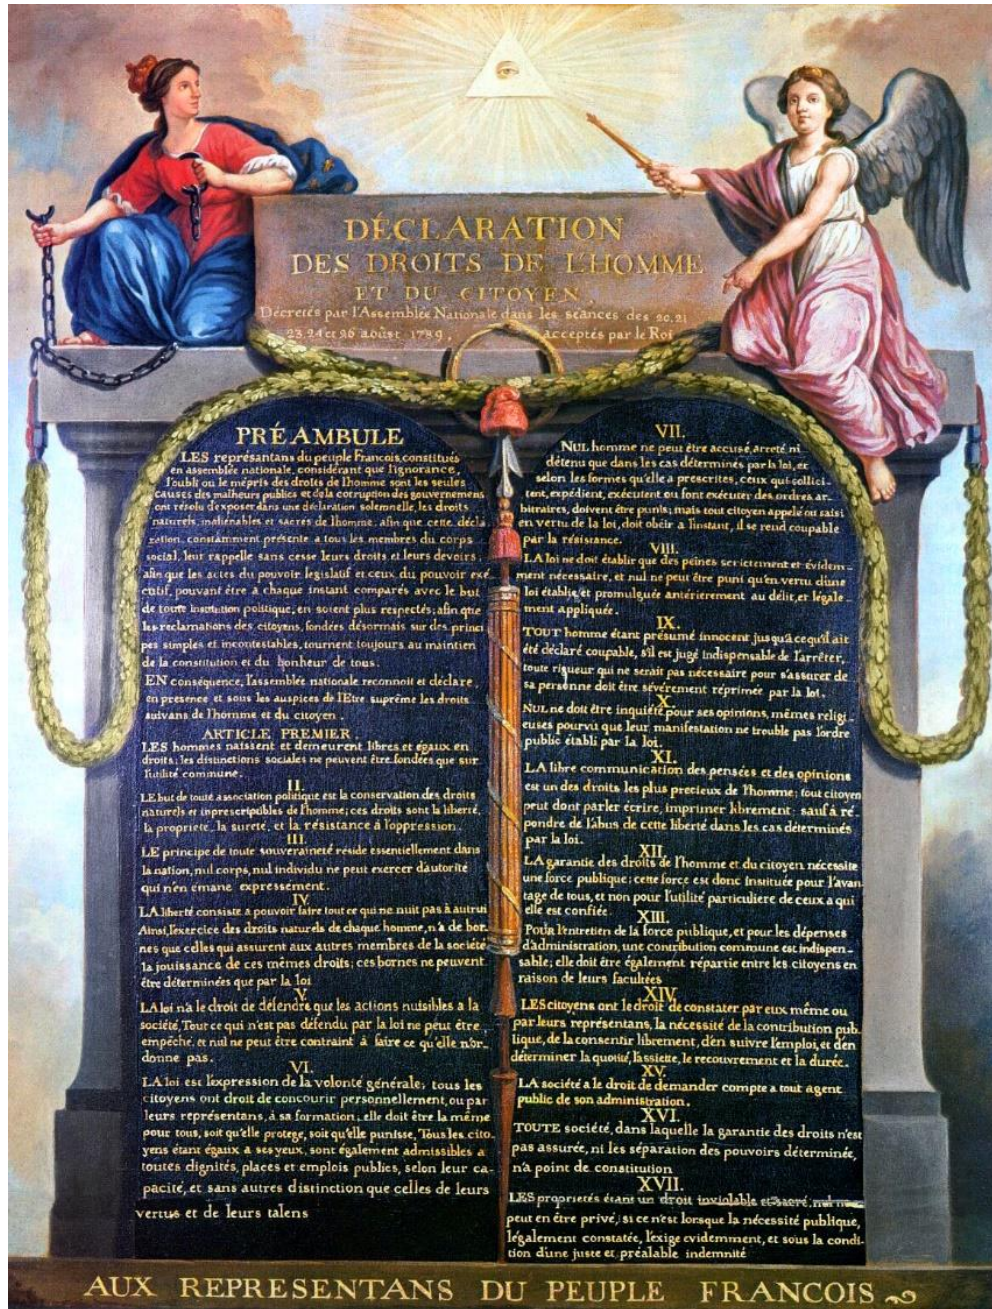 DÉCLARATION
DES DROITS DE L'HOMME
ET DU CITOYEN,
Décretés par l'Assemblée Nationale dans les séances des 20, 21
23, 24 et 26 août 1789, acceptés par le Roi
PRÉAMBULE
LES représantans du peuple François, constitués
en assemblée nationale, considérant que l'ignorance,
l'oubli ou le mépris des droits de l'homme sont les seules
causes des malheurs publics et de la corruption des gouvernemens
ont résolu d'exposer dans une déclaration solemnelle, les droits
naturels, inaliénables et sacrés de l'homme; afin que cette décla
ration, constamment présente a tous les membres du corps
social, leur rappelle sans cesse leurs droits et leurs devoirs;
afin que les actes du pouvoir legislatif et ceux du pouvoir exé
cutif, pouvant être à chaque instant comparés avec le but
de toute institution politique, en soient plus respectés; afin que
les reclamations des citoyens, fondées désormais sur des princi
pes simples et incontestables, tournent toujours au maintien
de la constitution et du bonheur de tous.
EN conséquence, l'assemblée nationale reconnoit et déclare,
en presence et sous les auspices de l'Etre suprême les droits
suivans de l'homme et du citoyen.
ARTICLE PREMIER.
LES hommes naissent et demeurent libres et égaux en
droits; les distinctions sociales ne peuvent être fondées que sur
l'utilité commune.
II.
LE but de toute association politique est la conservation des droits
naturels et inprescriptibles de l'homme; ces droits sont la liberté,
la propriete, la sureté, et la résistance à l'oppression.
III.
LE principe de toute souveraineté réside essentiellement dans
la nation, nul corps, nul individu ne peut exercer d'autorité
qui n'en émane expressement.
IV.
LA liberté consiste a pouvoir faire tout ce qui ne nuit pas à autrui
Ainsi, l'exercice des droits naturels de chaque homme, n'a de bor-
nes que celles qui assurent aux autres membres de la société
la jouissance de ces mêmes droits; ces bornes ne peuvent
être déterminées que par la loi
V.
LA loi n'a le droit de défendre que les actions nuisibles a la
société. Tout ce qui n'est pas défendu par la loi ne peut être
empêché, et nul ne peut être contraint à faire ce qu'elle n'or-
donne pas.
VI.
LA loi est l'expression de la volonté générale; tous les
citoyens ont droit de concourir personnellement, ou par
leurs représentans, à sa formation; elle doit être la même
pour tous, soit qu'elle protege, soit qu'elle punisse, Tous les cito-
yens étant égaux a ses yeux, sont également admissibles a
toutes dignités, places et emplois publics, selon leur ca-
pacité, et sans autres distinction que celles de leurs
vertus et de leurs talens
VII.
NUL homme ne peut être accusé, arreté ni
détenu que dans les cas déterminés par la loi, et
selon les formes qu'elle a prescrites, ceux qui sollici-
tent, expédient, exécutent ou font exécuter des ordres ar-
bitraires, doivent être punis; mais tout citoyen appelé ou saisi
en vertu de la loi, doit obéir a l'instant, il se rend coupable
par la résistance.
VIII.
LA loi ne doit établir que des peines strictement et évidem-
ment nécessaire, et nul ne peut être puni qu'en vertu d'une
loi établie, et promulguée antérierement au délit, et légale-
ment appliquée.
IX.
TOUT homme étant présumé innocent jusqu'a ce qu'il ait
été déclaré coupable, s'il est jugé indispensable de l'arrêter,
toute rigueur qui ne serait pas nécessaire pour s'assurer de
sa personne doit être sévèrement réprimée par la loi.
X.
NUL ne doit être inquiété pour ses opinions, mêmes religi-
euses pourvû que leur manifestation ne trouble pas l'ordre
public établi par la loi.
XI.
LA libre communication des pensées et des opinions
est un des droits les plus precieux de l'homme; tout citoyen
peut dont parler écrire, imprimer librement; sauf à ré-
pondre de l'abus de cette liberté dans les cas déterminés
par la loi.
XII.
LA garantie des droits de l'homme et du citoyen nécessite
une force publique; cette force est donc instituée pour l'avan-
tage de tous, et non pour l'utilité particuliere de ceux a qui
elle est confiée.
XIII.
POUR l'entretien de la force publique, et pour les dépenses
d'administration, une contribution commune est indispen-
sable; elle doit être également répartie entre les citoyens en
raison de leurs facultées
XIV.
LES citoyens ont le droit de constater par eux même ou
par leurs représentans, la nécessité de la contribution pub-
lique, de la consentir librement, d'en suivre l'emploi, et d'en
déterminer la quotité, l'assiette, le recouvrement et la durée.
XV.
LA société a le droit de demander compte a tout agent
public de son administration.
XVI.
TOUTE société, dans laquelle la garantie des droits n'est
pas assurée, ni les séparation des pouvoirs déterminée,
n'a point de constitution
XVII.
LES proprietés étant un droit inviolable et sacré, nul ne
peut en être privé, si ce n'est lorsque la nécessité publique,
légalement constatée, l'exige evidemment, et sous la condi-
tion d'une juste et préalable indemnité
AUX REPRESENTANS DU PEUPLE FRANCOIS